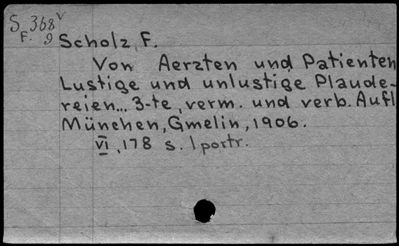 S. 368 v
F. 9
Scholz, F.
Von Aerzten und Patienten
Lustige und unlustige Plaude-
reien... 3-te, verm. und verb. Aufl
München, Gmelin, 1906.
VI, 178 s. 1 portr.